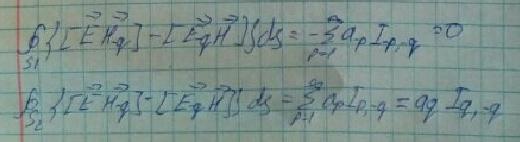 ∮_{S1} {[E⃗ H⃗_q] - [E⃗_q H⃗]} ds = -∑_{p=1}^{∞} a_p I_{p,-q} = 0
∮_{S2} {[E⃗ H⃗_q] - [E⃗_q H⃗]} ds = ∑_{p=1}^{∞} a_p I_{p,-q} = a_q I_{q,-q}